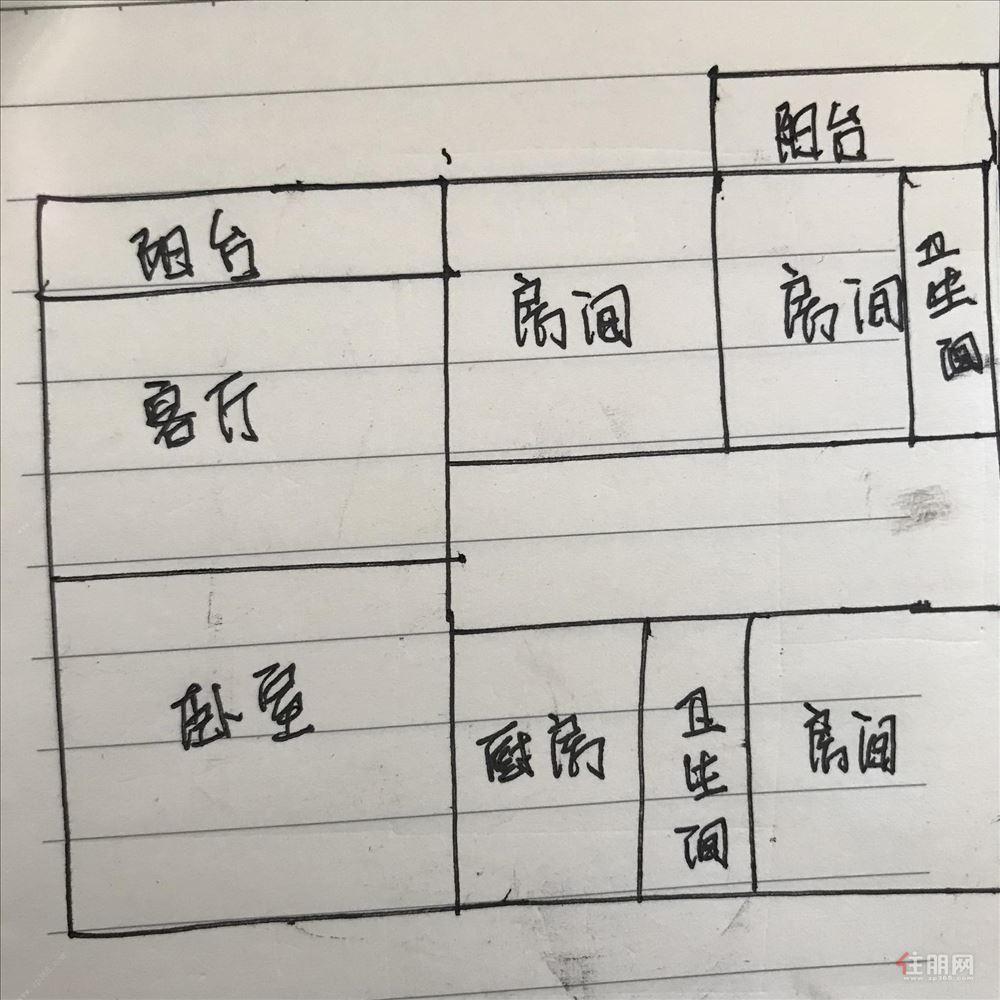 阳台
阳台
房间
房间
卫生间
客厅
卧室
厨房
卫生间
房间
住朋网
www.zp365.com